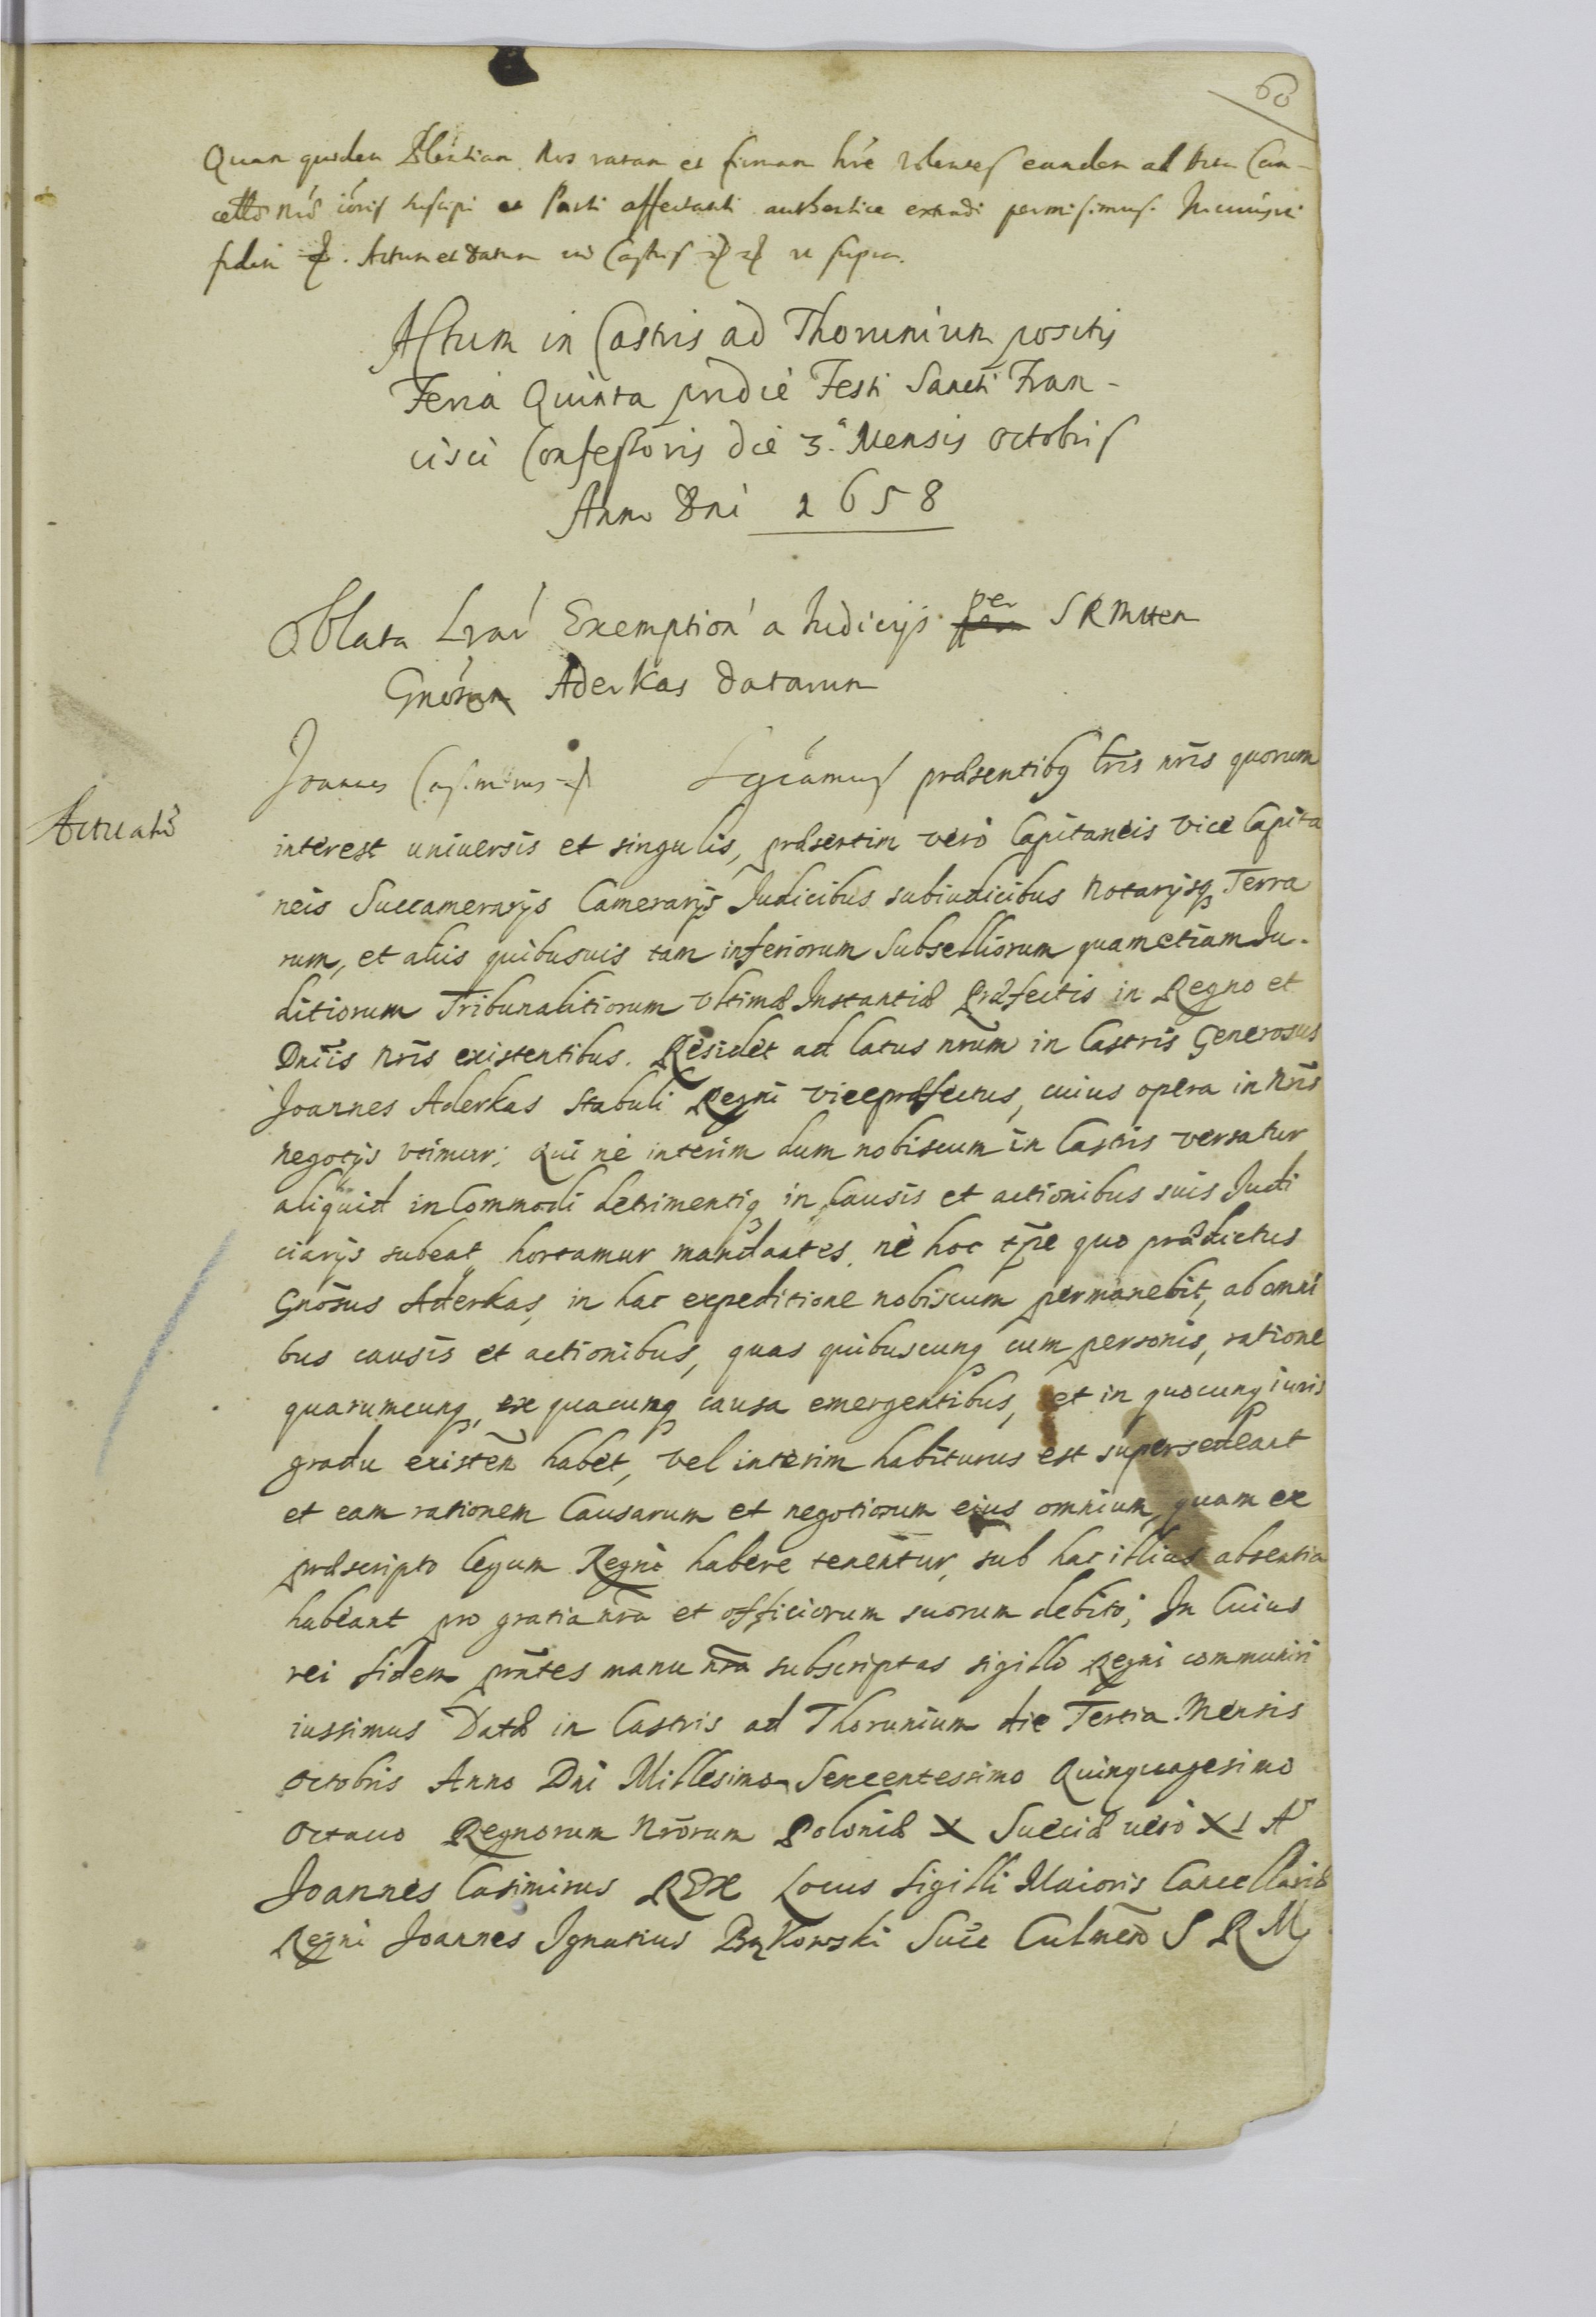 60
Quam quidem Plenitiam Nos ratam et firmam hre volentes eandem ad Acta Can-
cellae nrae ioris suscipi et Parti affectanti authentice extradi permisimus. In cuius rei
fidem. Actum et datum in Castris ut supra.
Actum in Castris ad Thorunium positis
Feria Quinta pridie Festi Sancti Fran-
cisci Confessoris die 3.a Mensis Octobris
Anno Dni 1658
Oblata Lrar Exemption a Iudicijs per S R Mttem
Gnoso Aderkas datarum
Joannes Casimirus Sgcamus praesentibus lris nris quorum
Actuatae
interest uniuersis et singulis, praesertim vero Capitaneis Vice Capita
neis Succamerarijs Camerarijs Iudicibus subiudicibus Notarijsq Terra
rum, et alijs quibusuis tam inferiorum Subselliorum quam etiam Iu-
ditiorum Tribunalitiorum Vltimae Instantiae Praefectis in Regno et
Dnijs Nris existentibus. Residet ad latus nrum in Castris Generosus
Joannes Aderkas Stabuli Regni viceprefectus, cuius opera in Nris
negotijs vtimur; qui ne interim dum nobiscum in Castris versatur
aliquid inCommodi detrimentiq in Causis et actionibus suis Iudi
ciarijs subeat, hortamur mandantes, ne hoc tpre quo praedictus
Gnosus Aderkas, in hac expeditione nobiscum permanebit, ab omni
bus causis et actionibus, quas quibuscunq cum personis, ratione
quarumcunq, ex quacunq causa emergentibus, et in quocunq iuris
gradu existen habet, vel interim habiturus est supersedeant
et eam rationem Causarum et negotiorum eius omnium, quam ex
praescripto legum Regni habere tenentur, sub hac illius absentia
habeant pro gratia nra et officiorum suorum debito; In Cuius
rei fidem pntes manu nra subscriptas sigillo Regni communiri
iussimus Datae in Castris ad Thorunium die Tertia Mensis
Octobris Anno Dni Millesimo Sexcentessimo Quinquagesimo
Octauo Regnorum Nrorum Poloniae X Sueciae vero XI Ao
Joannes Casimirus REX Locus Sigilli Maioris Cancellariae
Regni Joannes Ignatius Bąkowski Succ Culmen S R M